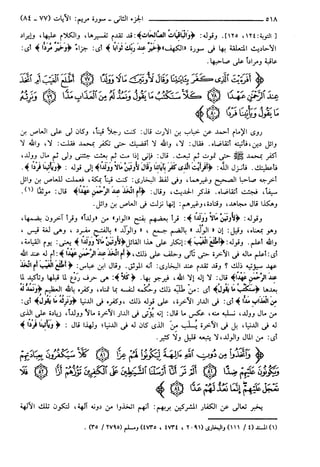 ٥١٨ الجزء الثاني - سورة مريم: الآيات (٧٧ - ٨٤)
[التوبة: ١٢٤، ١٢٥]. وقوله: ﴿وَالْبَاقِيَاتُ الصَّالِحَاتُ﴾: قد تقدم تفسيرها، والكلام عليها، وإيراد
الأحاديث المتعلقة بها في سورة «الكهف» ﴿خَيْرٌ عِندَ رَبِّكَ ثَوَابًا﴾ أي: جزاءً ﴿وَخَيْرٌ مَّرَدًّا﴾ أي:
عاقبة ومرداً على صاحبها.
﴿أَفَرَأَيْتَ الَّذِي كَفَرَ بِآيَاتِنَا وَقَالَ لَأُوتَيَنَّ مَالًا وَوَلَدًا ﴿٧٧﴾ أَطَّلَعَ الْغَيْبَ أَمِ اتَّخَذَ
عِندَ الرَّحْمَٰنِ عَهْدًا ﴿٧٨﴾ كَلَّا سَنَكْتُبُ مَا يَقُولُ وَنَمُدُّ لَهُ مِنَ الْعَذَابِ مَدًّا ﴿٧٩﴾
وَنَرِثُهُ مَا يَقُولُ وَيَأْتِينَا فَرْدًا ﴿٨٠﴾﴾
روى الإمام أحمد عن خباب بن الارت قال: كنت رجلاً قيناً، وكان لي على العاص بن
وائل دين، فأتيته أتقاضاه. فقال: لا، والله لا أقضيك حتى تكفر بمحمد فقلت: لا، والله لا
أكفر بمحمد ﷺ حتى تموت ثم تبعث. قال: فإني إذا مت ثم بعثت جئتني ولي ثم مال وولد،
فأعطيتك. فأنزل الله: ﴿أَفَرَأَيْتَ الَّذِي كَفَرَ بِآيَاتِنَا وَقَالَ لَأُوتَيَنَّ مَالًا وَوَلَدًا﴾ إلى قوله: ﴿وَيَأْتِينَا فَرْدًا﴾.
أخرجه صاحبا الصحيح وغيرهما، وفي لفظ البخاري: كنت قيناً بمكة، فعملت للعاص بن وائل
سيفاً، فجئت أتقاضاه. فذكر الحديث، وقال: ﴿أَمِ اتَّخَذَ عِندَ الرَّحْمَٰنِ عَهْدًا﴾ قال: موثقاً (١).
وهكذا قال مجاهد، وقتادة، وغيرهم: إنها نزلت في العاص بن وائل.
وقوله: ﴿لَأُوتَيَنَّ مَالًا وَوَلَدًا﴾: قرأ بعضهم بفتح «الواو» من «ولداً» وقرأ آخرون بضمها،
وهو بمعناه، وقيل: إن «الولد» بالضم جمع، و«الولد» بالفتح مفرد، وهي لغة قيس،
والله أعلم. وقوله: ﴿أَطَّلَعَ الْغَيْبَ﴾: إنكار على هذا القائل ﴿لَأُوتَيَنَّ مَالًا وَوَلَدًا﴾ يعني: يوم القيامة،
أي: أعلم ماله في الآخرة حتى تألى وحلف على ذلك، ﴿أَمِ اتَّخَذَ عِندَ الرَّحْمَٰنِ عَهْدًا﴾: أم له عند الله
عهد سيؤتيه ذلك؟ وقد تقدم عند البخاري: أنه الموثق. وقال ابن عباس: ﴿أَطَّلَعَ الْغَيْبَ أَمِ اتَّخَذَ
عِندَ الرَّحْمَٰنِ عَهْدًا﴾ قال: لا إله إلا الله، فيرجو بها. ﴿كَلَّا﴾: هي حرف ردع لما قبلها وتأكيد لما
بعدها ﴿سَنَكْتُبُ مَا يَقُولُ﴾ أي: من طلبه ذلك وحكمه لنفسه بما تمناه، وكفره بالله العظيم ﴿وَنَمُدُّ لَهُ
مِنَ الْعَذَابِ مَدًّا﴾ أي: في الدار الآخرة، على قوله ذلك، وكفره في الدنيا ﴿وَنَرِثُهُ مَا يَقُولُ﴾ أي:
من مال وولد، نسلبه منه، عكس ما قال: إنه يؤتى في الدار الآخرة مالاً وولداً، زيادة على الذي
له في الدنيا، بل في الآخرة يُسلَب من الذي كان له في الدنيا، ولهذا قال: ﴿وَيَأْتِينَا فَرْدًا﴾
أي: من المال والولد، لا يتبعه قليل ولا كثير.
﴿وَاتَّخَذُوا مِن دُونِ اللَّهِ آلِهَةً لِّيَكُونُوا لَهُمْ عِزًّا ﴿٨١﴾ كَلَّا سَيَكْفُرُونَ بِعِبَادَتِهِمْ
وَيَكُونُونَ عَلَيْهِمْ ضِدًّا ﴿٨٢﴾ أَلَمْ تَرَ أَنَّا أَرْسَلْنَا الشَّيَاطِينَ عَلَى الْكَافِرِينَ تَؤُزُّهُمْ أَزًّا ﴿٨٣﴾ فَلَا
تَعْجَلْ عَلَيْهِمْ إِنَّمَا نَعُدُّ لَهُمْ عَدًّا ﴿٨٤﴾﴾
يخبر تعالى عن الكفار المشركين بربهم: أنهم اتخذوا من دونه آلهة، لتكون تلك الآلهة
(١) المسند (١١١/٤) والبخاري (٢٠٩١، ٤٧٣٤، ٤٧٣٣) ومسلم (٢٧٩٥/ ٣٥).